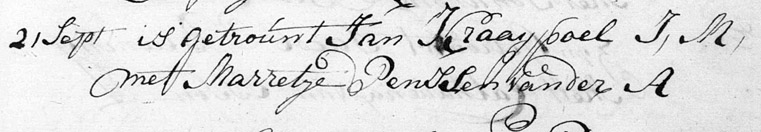 21 Sept is getrouwt Jan Kraaypoel J, M,
met Marretje Penssen vander A